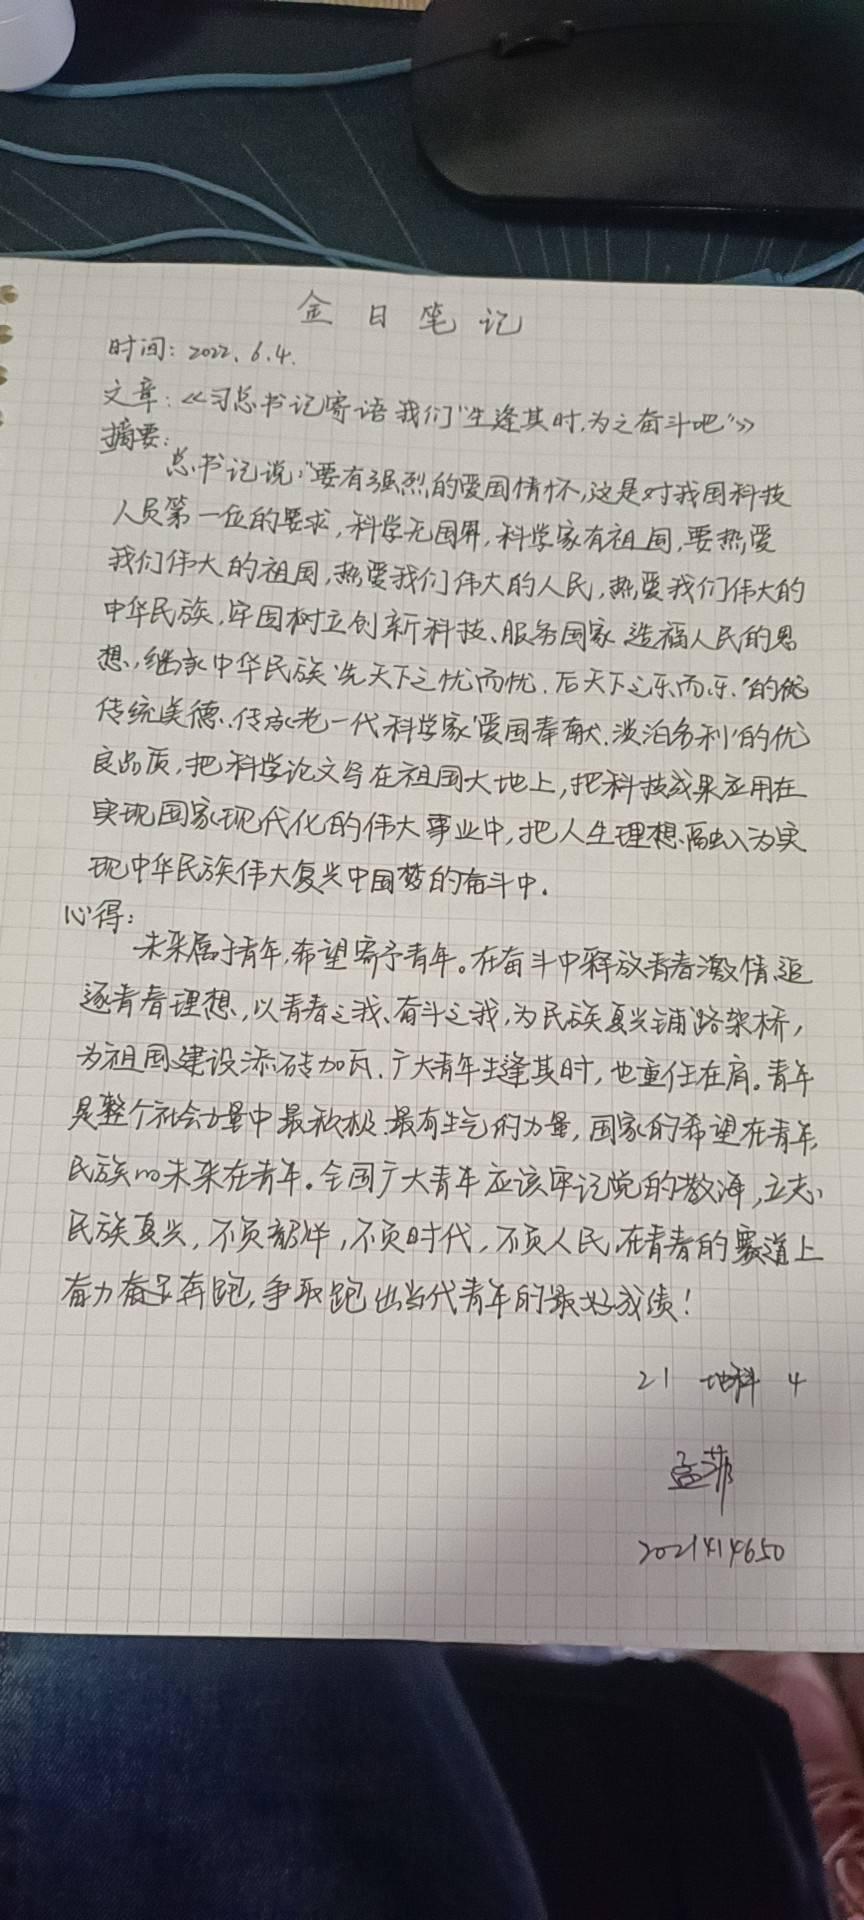 金日笔记
时间：2022.6.4.
文章：《习总书记寄语我们"生逢其时,为之奋斗吧"》
摘要：
总书记说:"要有强烈的爱国情怀,这是对我国科技
人员第一位的要求,科学无国界,科学家有祖国,要热爱
我们伟大的祖国,热爱我们伟大的人民,热爱我们伟大的
中华民族,牢固树立创新科技、服务国家造福人民的思
想,继承中华民族'先天下之忧而忧.后天下之乐而乐.'的优
传统美德.传承老一代科学家'爱国奉献.淡泊名利'的优
良品质,把科学论文写在祖国大地上,把科技成果应用在
实现国家现代化的伟大事业中,把人生理想融入为实
现中华民族伟大复兴中国梦的奋斗中.
心得：
未来属于青年,希望寄予青年。在奋斗中释放青春激情追
逐青春理想,以青春之我、奋斗之我,为民族复兴铺路架桥,
为祖国建设添砖加瓦.广大青年生逢其时,也重任在肩。青年
是整个社会力量中最积极.最有生气的力量,国家的希望在青年,
民族的未来在青年。全国广大青年应该牢记党的教诲,立志
民族复兴,不负韶华,不负时代,不负人民,在青春的赛道上
奋力奔跑,争取跑出当代青年的最好成绩!
21 地科 4
孟菲
2021414650